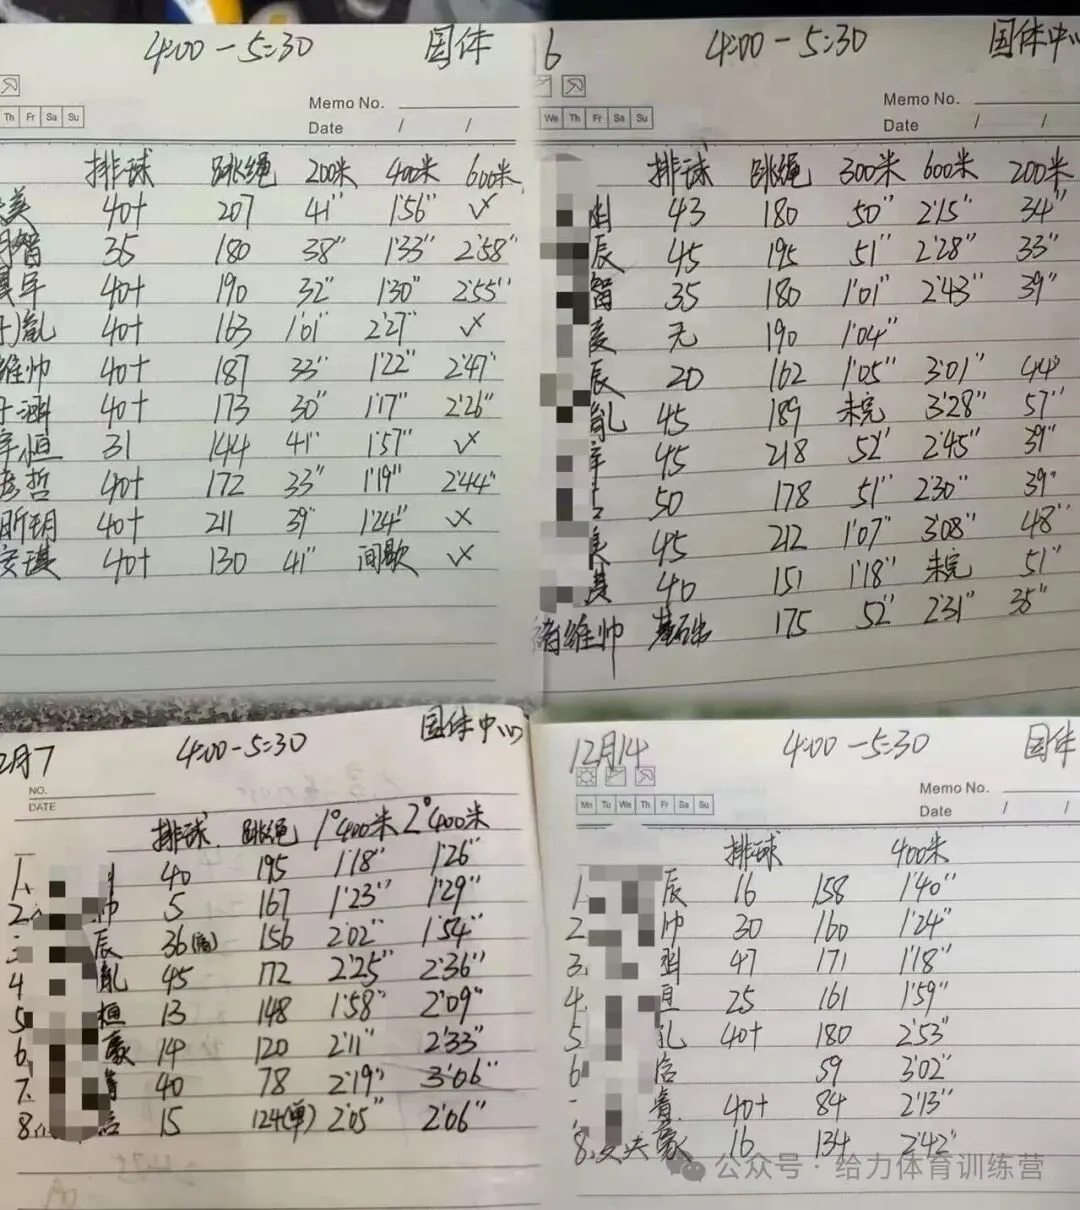 4:00-5:30 国体
Memo No.
Th Fr Sa Su
Date / /
排球 跳绳 200米 400米 600米
美 40+ 207 41" 1'56" ✓
智 35 180 38" 1'33" 2'58"
40+ 190 32" 1'30" 2'55"
胤 40+ 163 1'01" 2'27" ✓
维帅 40+ 187 33" 1'22" 2'47"
涵 40+ 173 30" 1'17" 2'26"
恒 31 144 41" 1'57" ✓
哲 40+ 172 33" 1'19" 2'44"
昕玥 40+ 211 39" 1'24" ✓
安琪 40+ 130 41" 间歇 ✓
6 4:00-5:30 国体中心
Memo No.
We Th Fr Sa Su
Date / /
排球 跳绳 300米 600米 200米
43 180 50" 2'15" 34"
辰 45 195 51" 2'28" 33"
智 35 180 1'01" 2'43" 39"
无 190 1'04"
辰 20 162 1'05" 3'01" 44"
胤 45 189 未完 3'28" 57"
45 218 52" 2'45" 39"
50 178 51" 2'30" 39"
美 45 212 1'07" 3'08" 48"
40 151 1'18" 未完 51"
维帅 基础 175 52" 2'31" 35"
2月7 4:00-5:30 国体中心
NO.
DATE
排球 跳绳 1°400米 2°400米
1. 40 195 1'18" 1'26"
2. 帅 5 167 1'23" 1'29"
3. 辰 36(高) 156 2'02" 1'54"
4 胤 45 172 2'25" 2'36"
5. 桓 13 148 1'58" 2'09"
6. 豪 14 120 2'11" 2'33"
7. 40 78 2'19" 3'06"
8. 15 124(单) 2'05" 2'06"
12月14 4:00-5:30 国体
Memo No.
Mo Tu We Th Fr Sa Su
Date / /
排球 400米
1. 辰 16 158 1'40"
2. 帅 30 160 1'24"
3. 47 171 1'18"
4. 25 161 1'59"
5 40+ 180 2'53"
6 59 3'02"
40+ 84 2'13"
8. 豪 16 134 2'42"
公众号·给力体育训练营